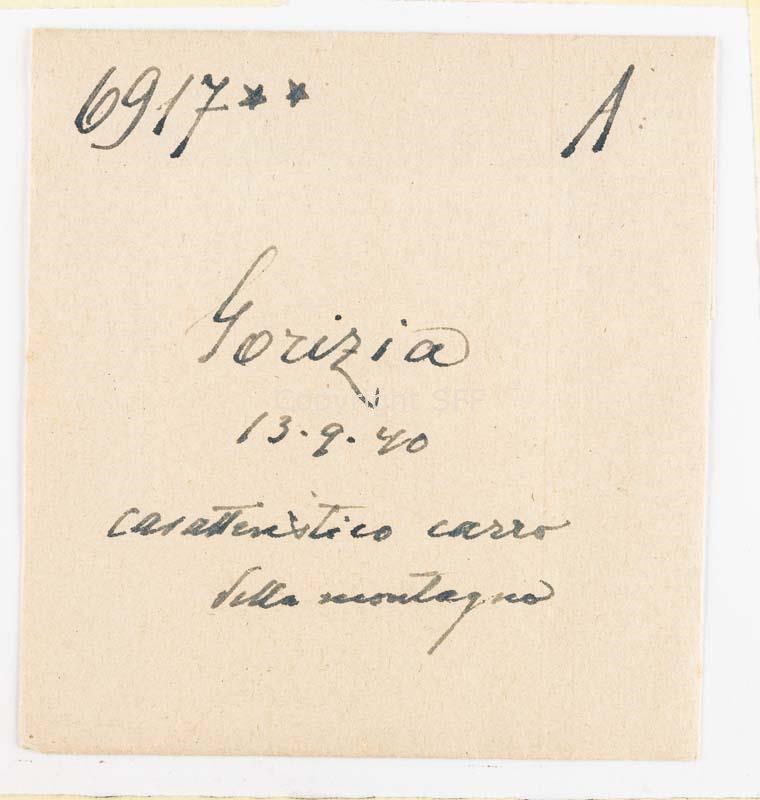 6917** A
Gorizia
Copyright SFP
13.9.40
caratteristico carro
della montagna